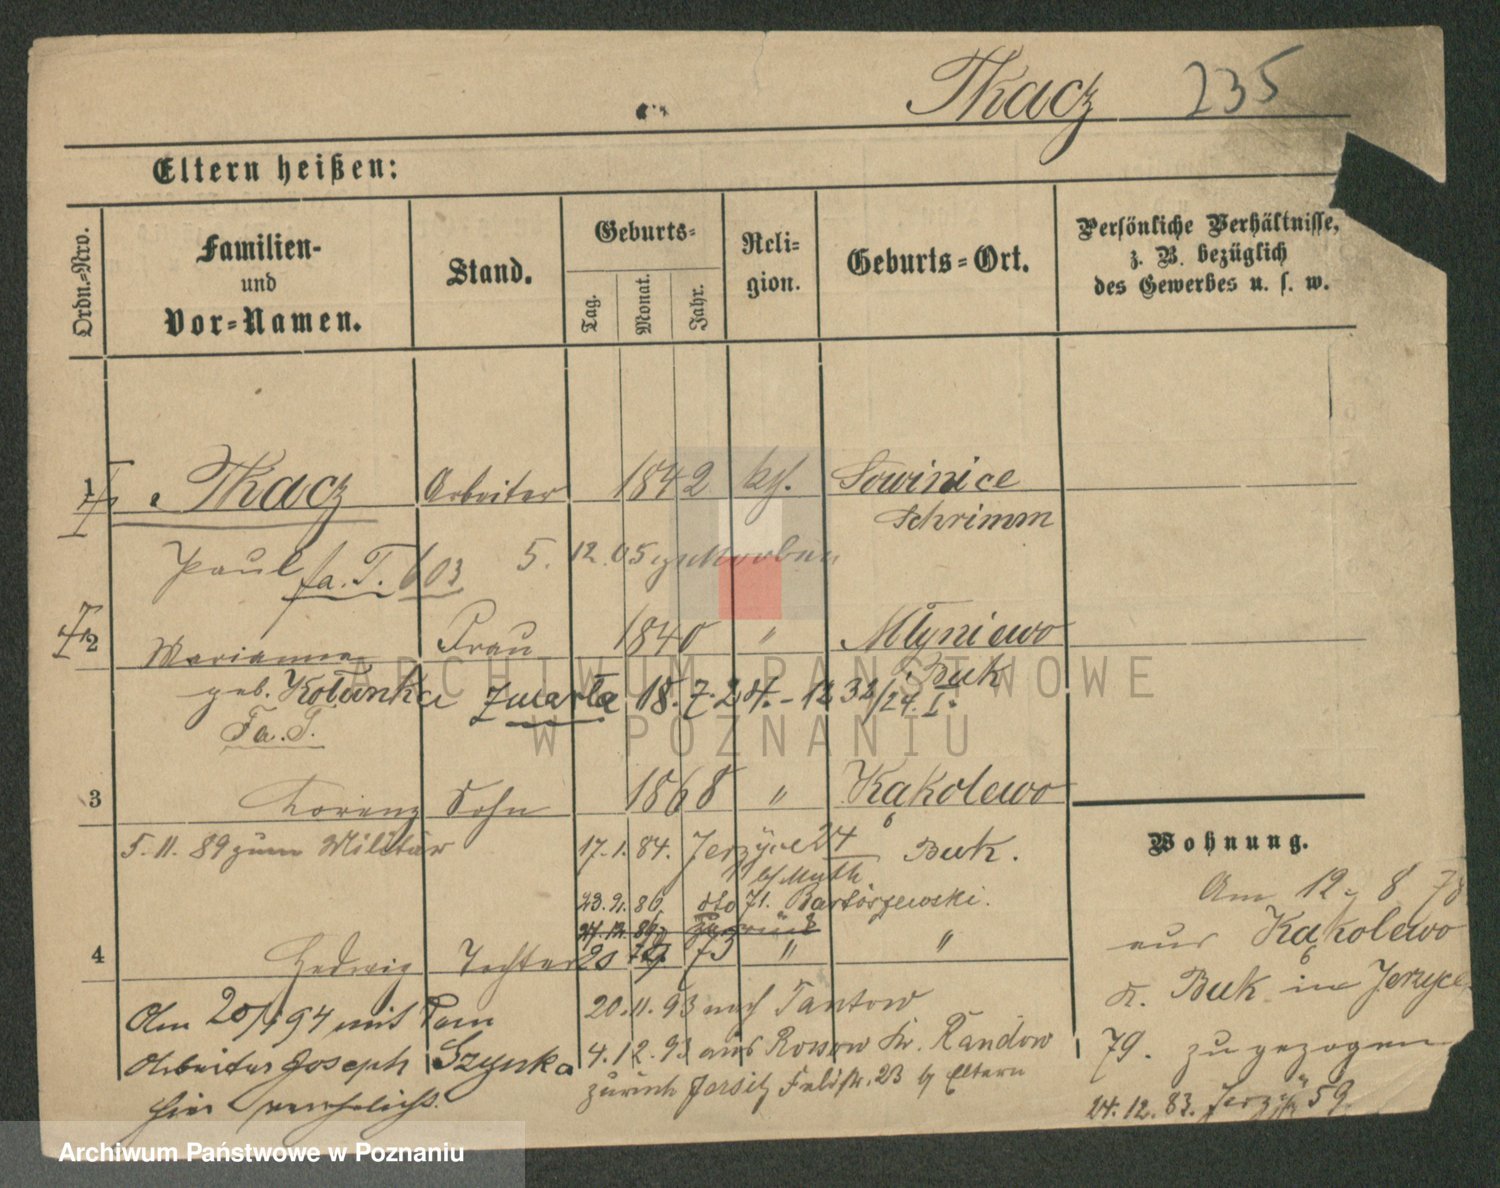 Tkacz 235
Eltern heißen:
Ordn.-Nro.
Familien-
und
Vor-Namen.
Stand.
Geburts-
Tag.
Monat.
Jahr.
Reli-
gion.
Geburts-Ort.
Persönliche Verhältnisse,
z. B. bezüglich
des Gewerbes u. s. w.
1 Tkacz Arbeiter 1842 kh. Sowinice
Schrimm
Paul fa. T. 603 5. 12. 05
2 Marianna Frau 1840 " Młyniewo
Buk
geb. Kolanka Zmarła 18. 7. 24. - 1232/24. I.
Fa. T.
3 Lorenz Sohn 1868 " Kąkolewo
5. 11. 89 zum Militär
17. 1. 84. Jerzyce 24 Buk.
b/ Muth
23. 9. 86. dto 71. Bartorzewski.
27. 12. 86.
4 Hedwig Tochter 20 9 73 " "
Am 20/1 94 mit dem
Arbeiter Joseph Szynka
hier verehelicht.
20. 11. 93 nach Tantow
4. 12. 93 aus Rosow Kr. Randow
zurück Jersitz Feldstr. 23 b/ Eltern
Wohnung.
Am 12. 8 78
aus Kąkolewo
K. Buk in Jerzyce
79. zugezogen
24. 12. 83. Jerzyce 59.
ARCHIWUM PAŃSTWOWE
W POZNANIU
Archiwum Państwowe w Poznaniu